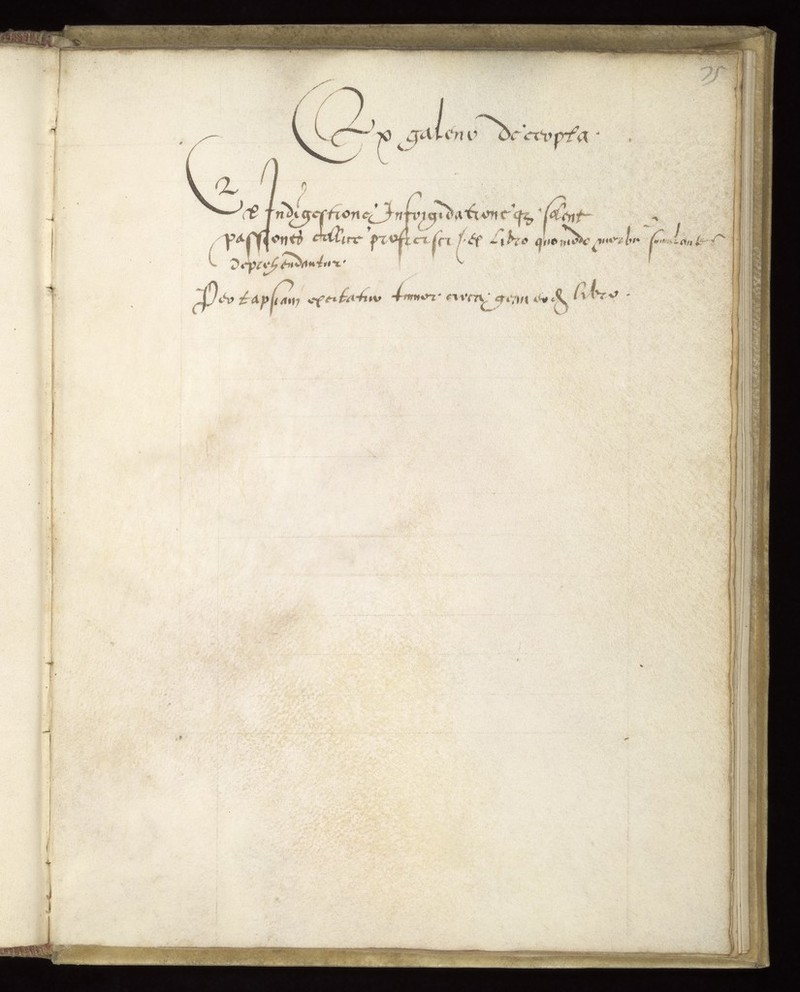 75
Ex galeno decerpta.
Ex Indigestione, Infrigidatione q3 solent
passiones collice proficisci. ex Libro quomodo morbū simulantes
deprehendantur.
Per tapsiam excitatur tumor circa genu eodē libro.